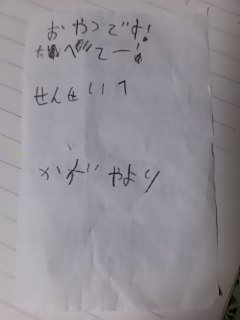 おやつです!
たべてー!
せんせいへ
かがやより